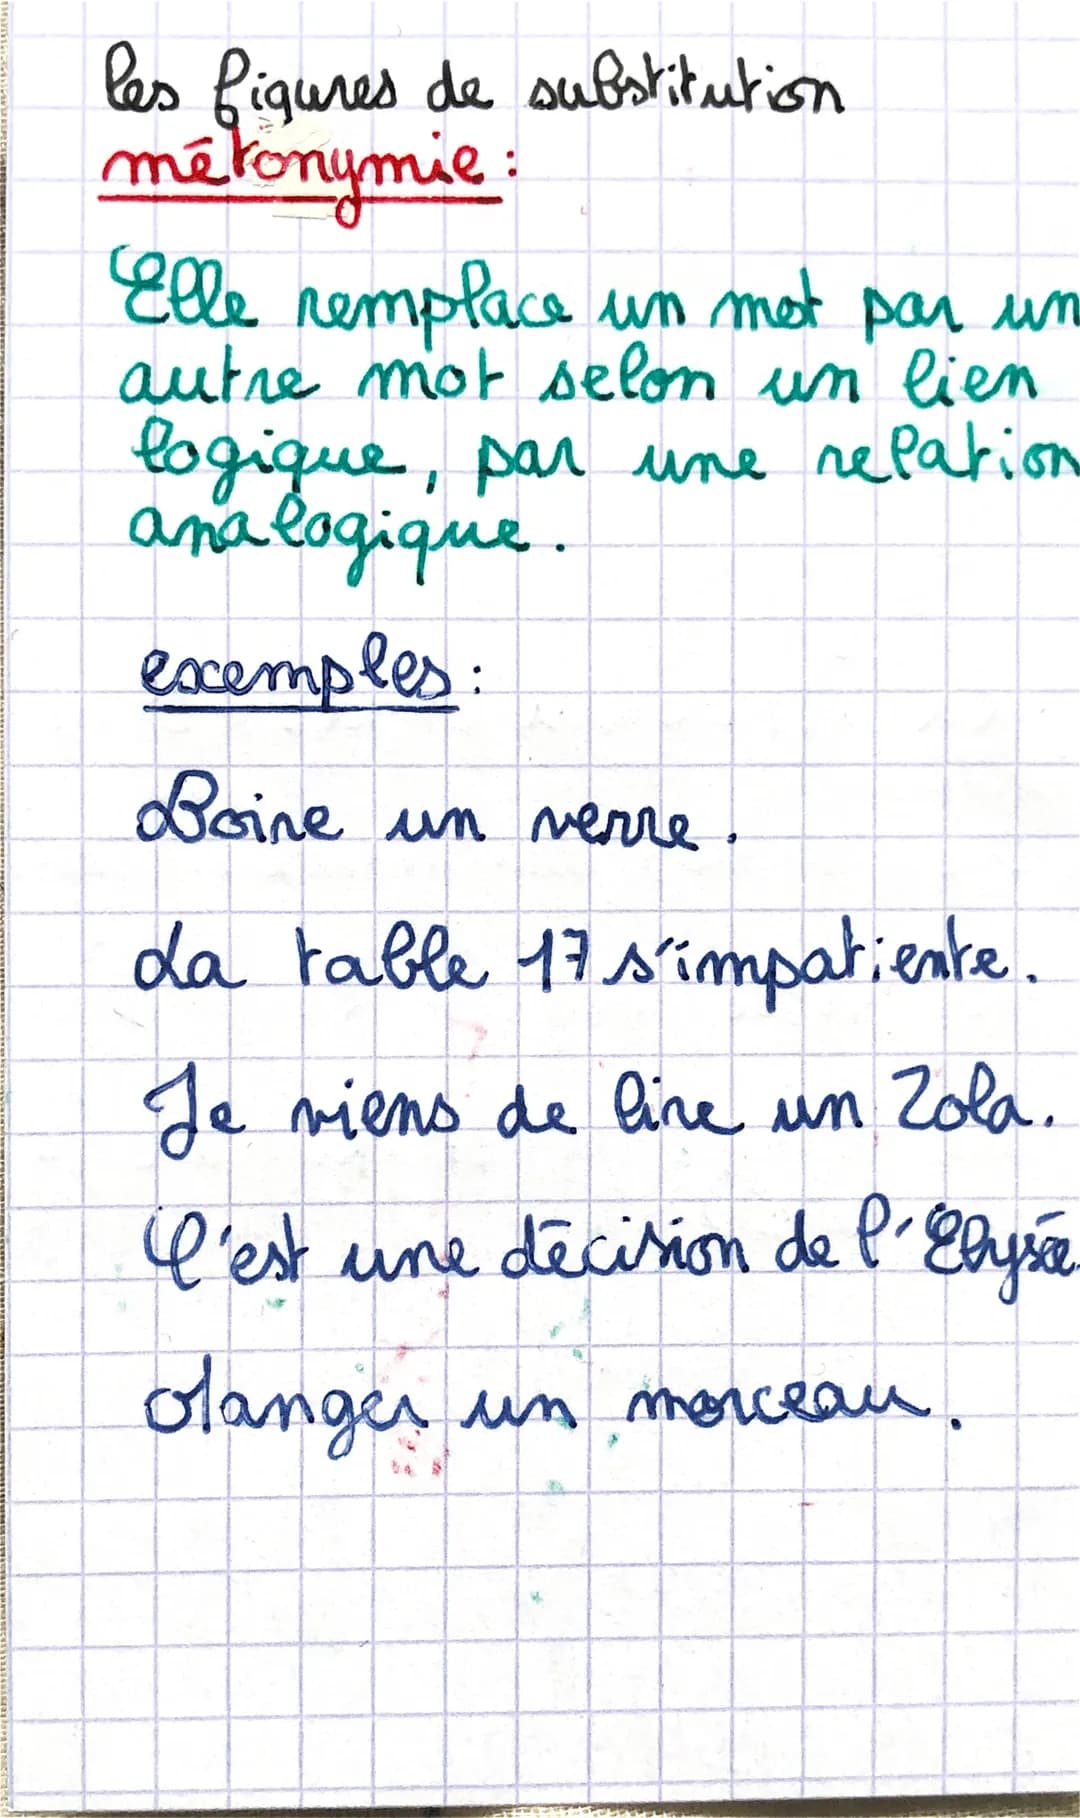 les figures de substitution
métonymie :
Elle remplace un mot par un
autre mot selon un lien
logique, par une relation
analogique.
exemples :
Boire un verre.
La table 17 s'impatiente.
Je viens de lire un Zola.
C'est une décision de l'Elysée.
Manger un morceau.